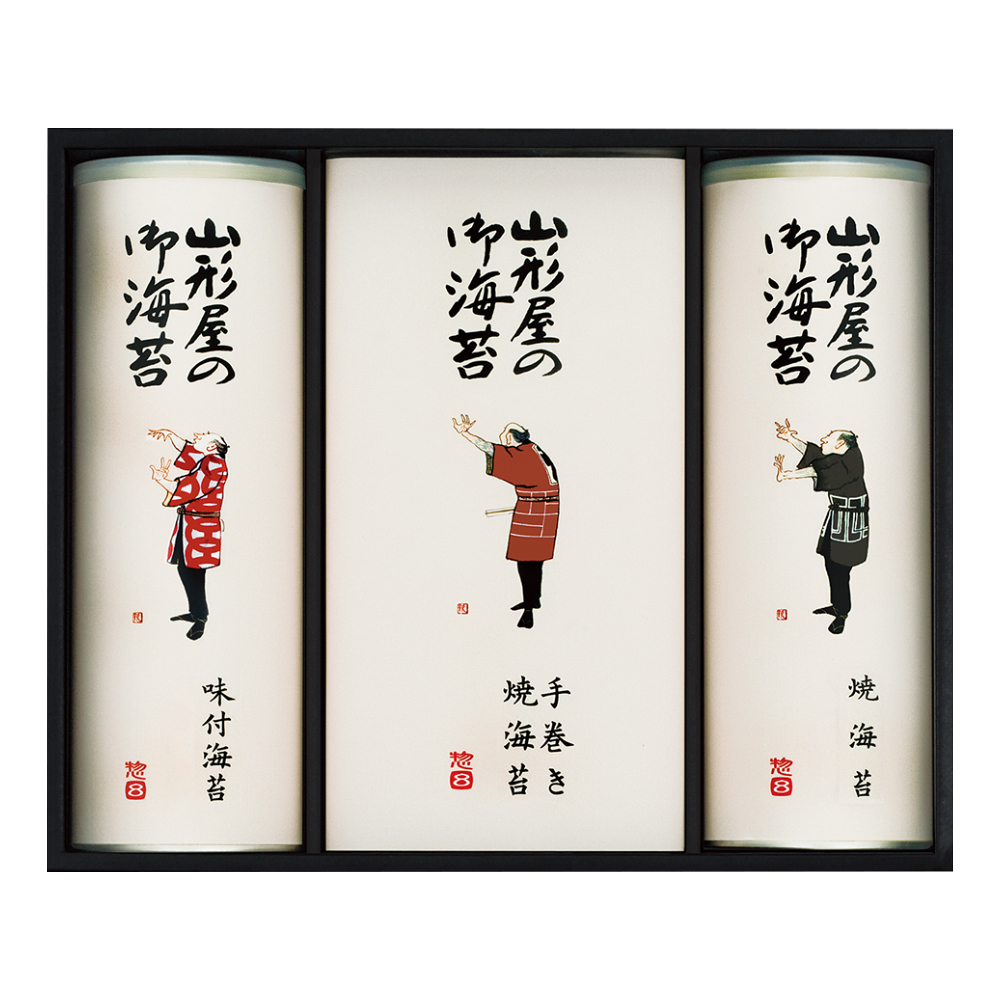 山形屋の
御海苔
味付海苔
惣八
山形屋の
御海苔
手巻き
焼海苔
惣八
山形屋の
御海苔
焼海苔
惣八